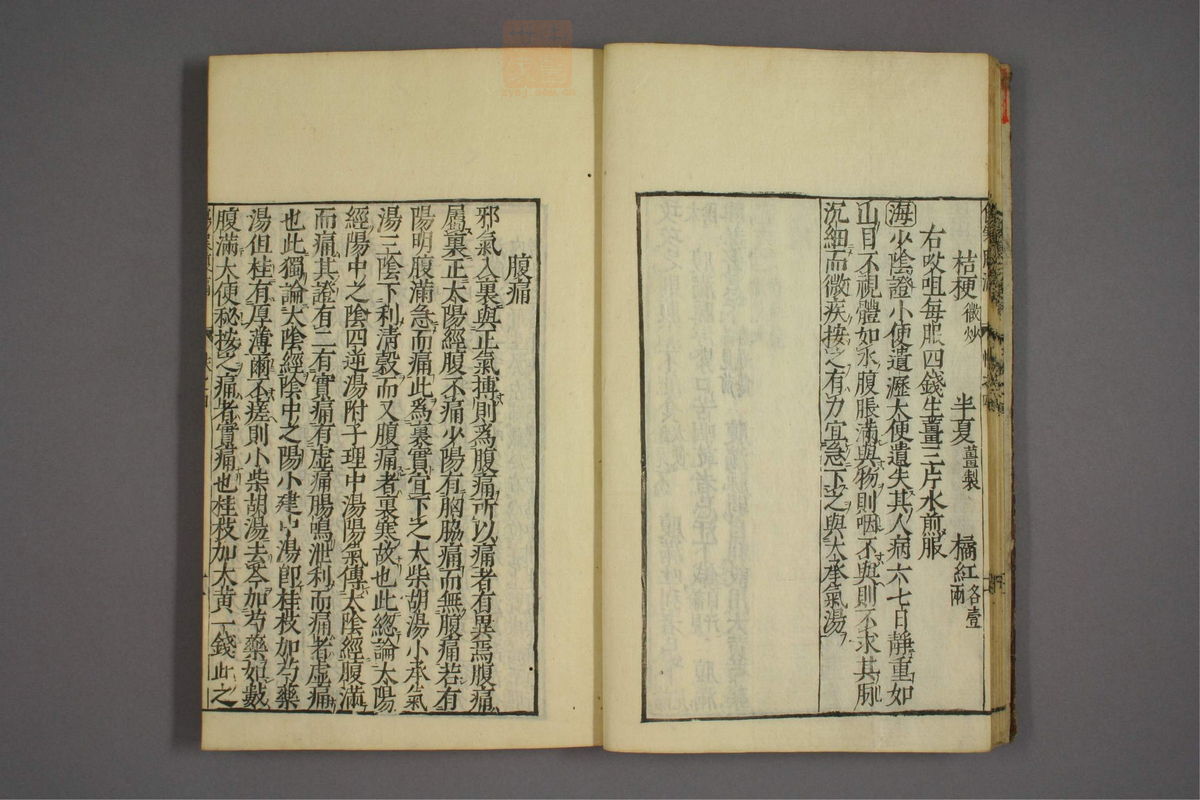 桔梗微炒 半夏薑製 橘紅各壹兩
右㕮咀每服四錢生薑三片水煎服
海少陰證小便遺瀝大便遺失其人病六七日靜重如
山目不視體如水腹脹滿與物則咽不與則不求其脈
沉細而微疾按之有力宜急下之與大承氣湯
腹痛
邪氣入裏與正氣搏則爲腹痛所以痛者有異焉腹痛
屬裏正太陽經腹不痛少陽有胸脇痛而無腹痛若有
陽明腹滿急而痛此爲裏實宜下之大柴胡湯小承氣
湯三陰下利清穀而又腹痛者裏寒故也此總論太陽
經陽中之陰四逆湯附子理中湯陽氣傳太陰經腹滿
而痛其證有二有實痛有虛痛腸鳴泄利而痛者虛痛
也此獨論太陰經陰中之陽小建中湯即桂枝加芍藥
湯但桂有厚薄爾不瘥則小柴胡湯去芩加芍藥如數
腹滿大便秘按之痛者實痛也桂枝加大黃一錢此之